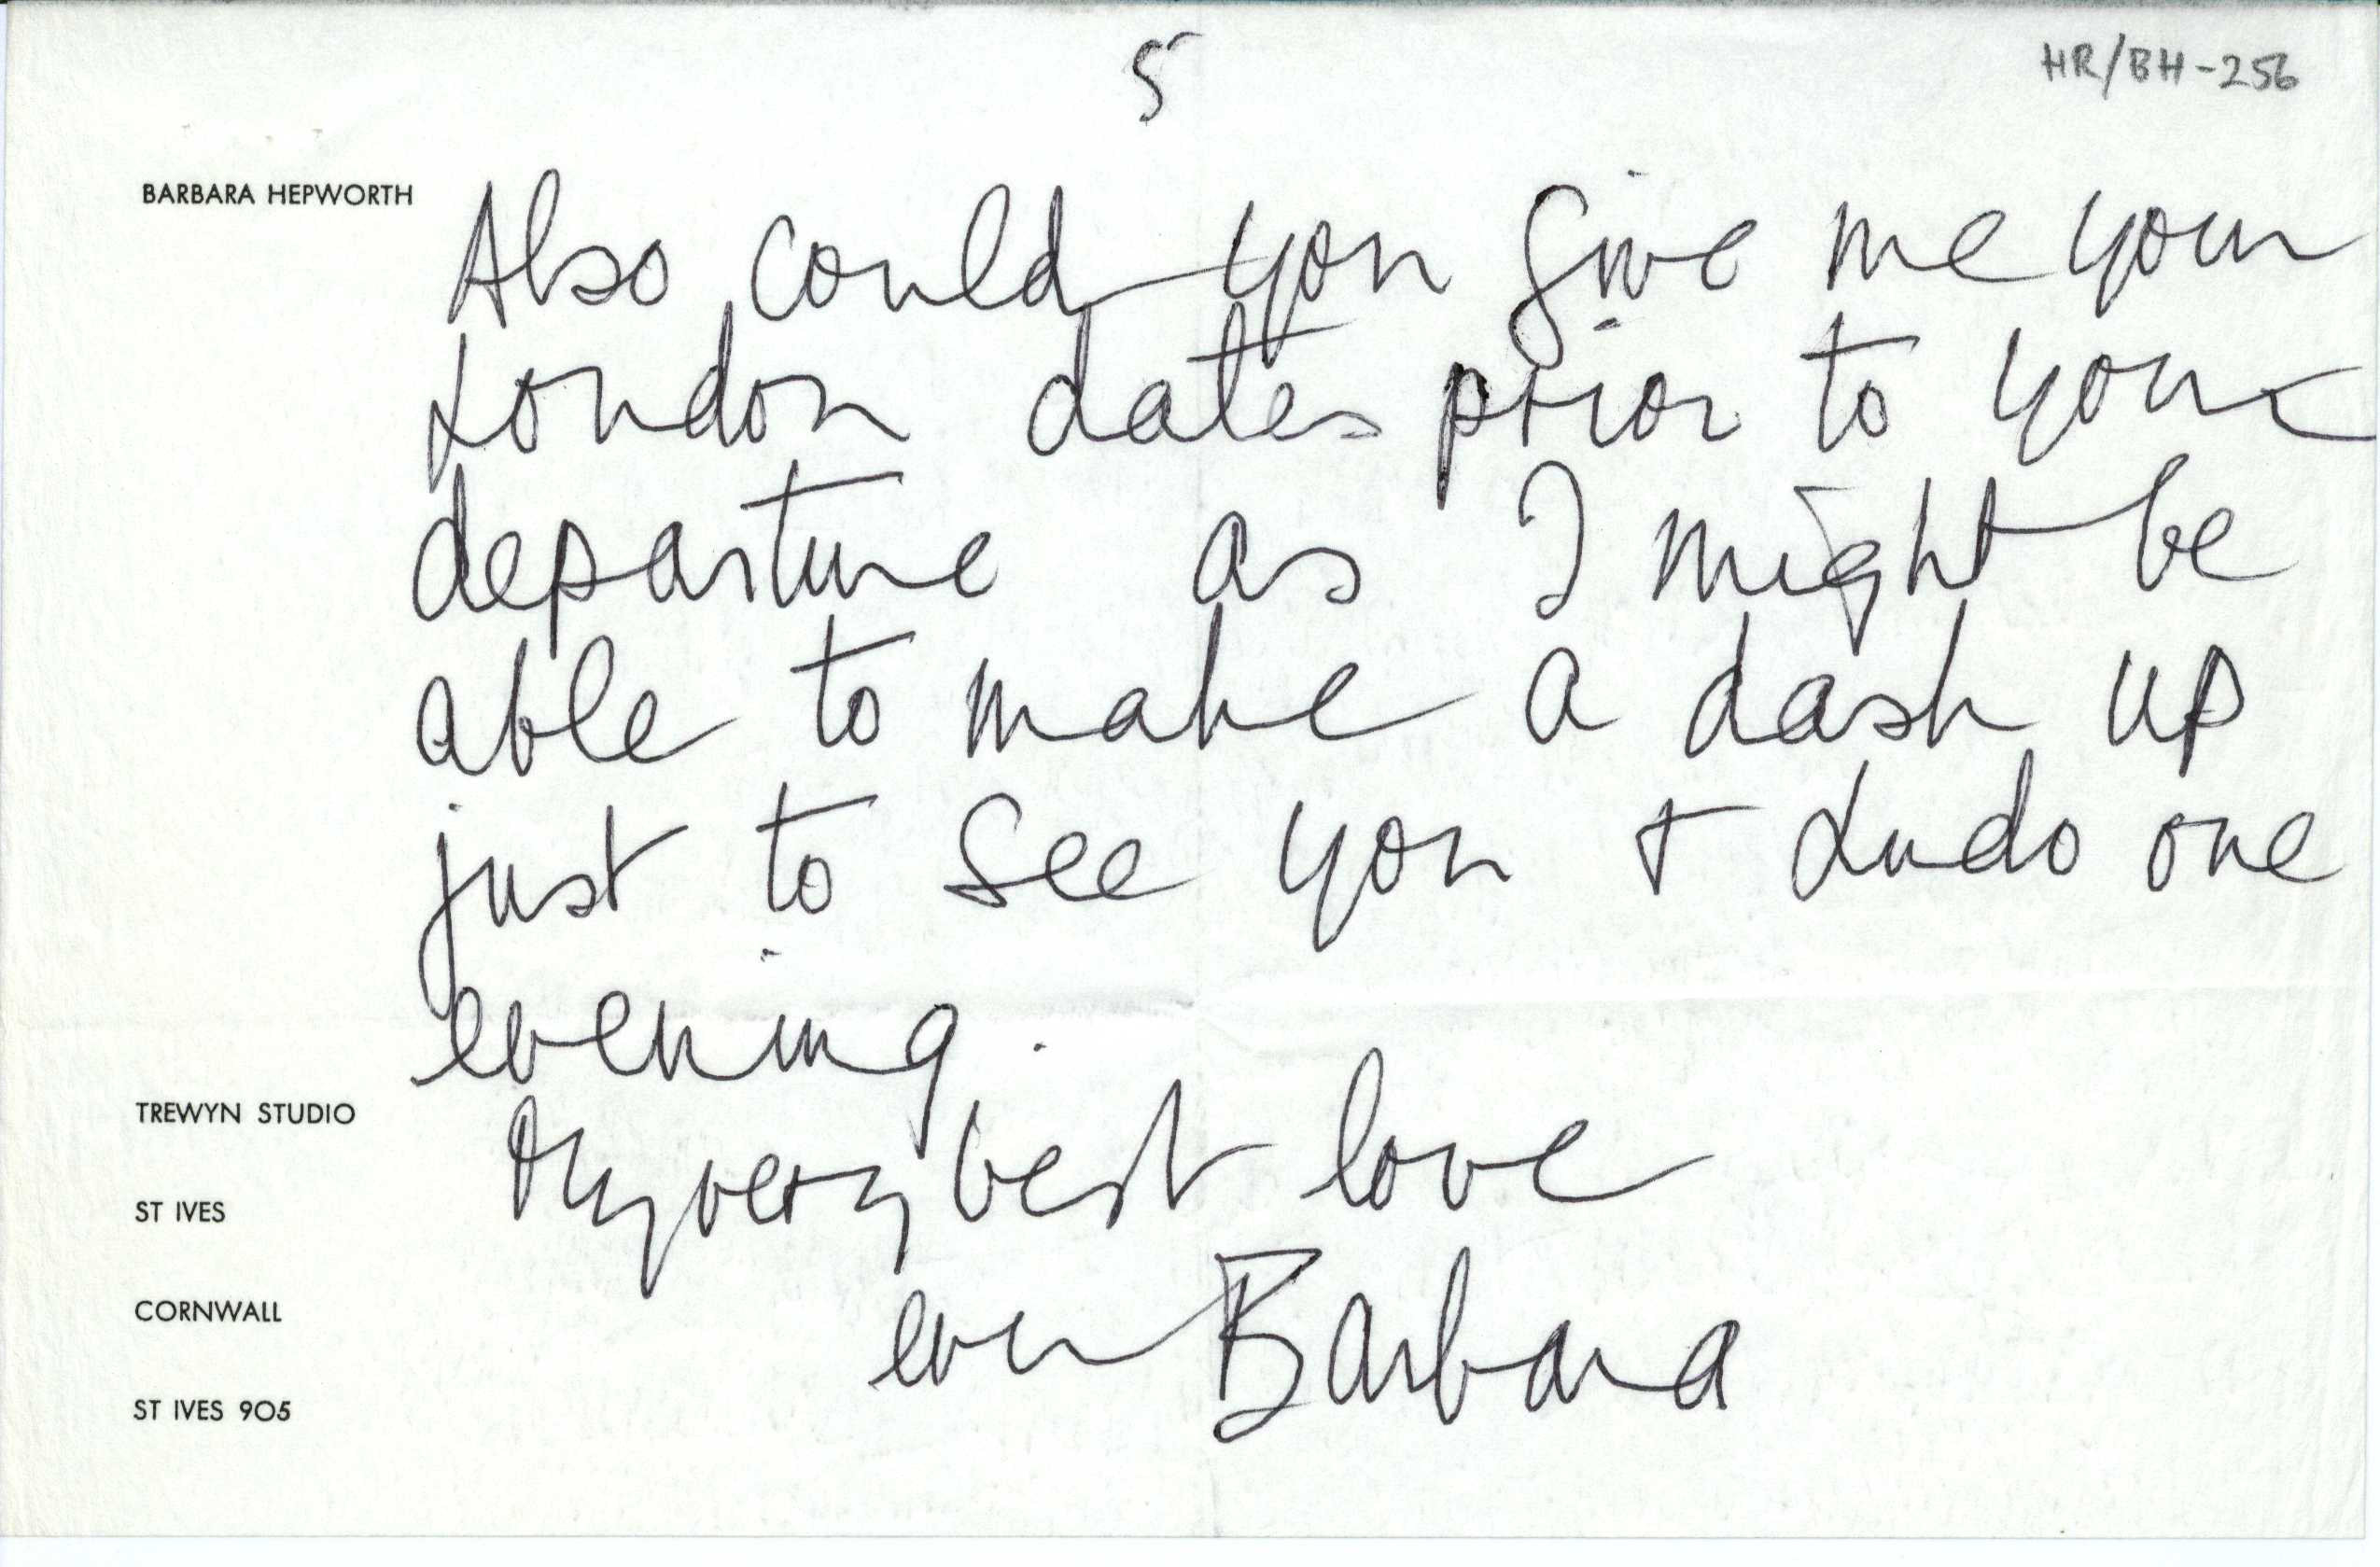 5
HR/BH-256
BARBARA HEPWORTH
Also could you give me your
London dates prior to your
departure as I might be
able to make a dash up
just to see you + Ludo one
evening.
My very best love
ever Barbara
TREWYN STUDIO
ST IVES
CORNWALL
ST IVES 905